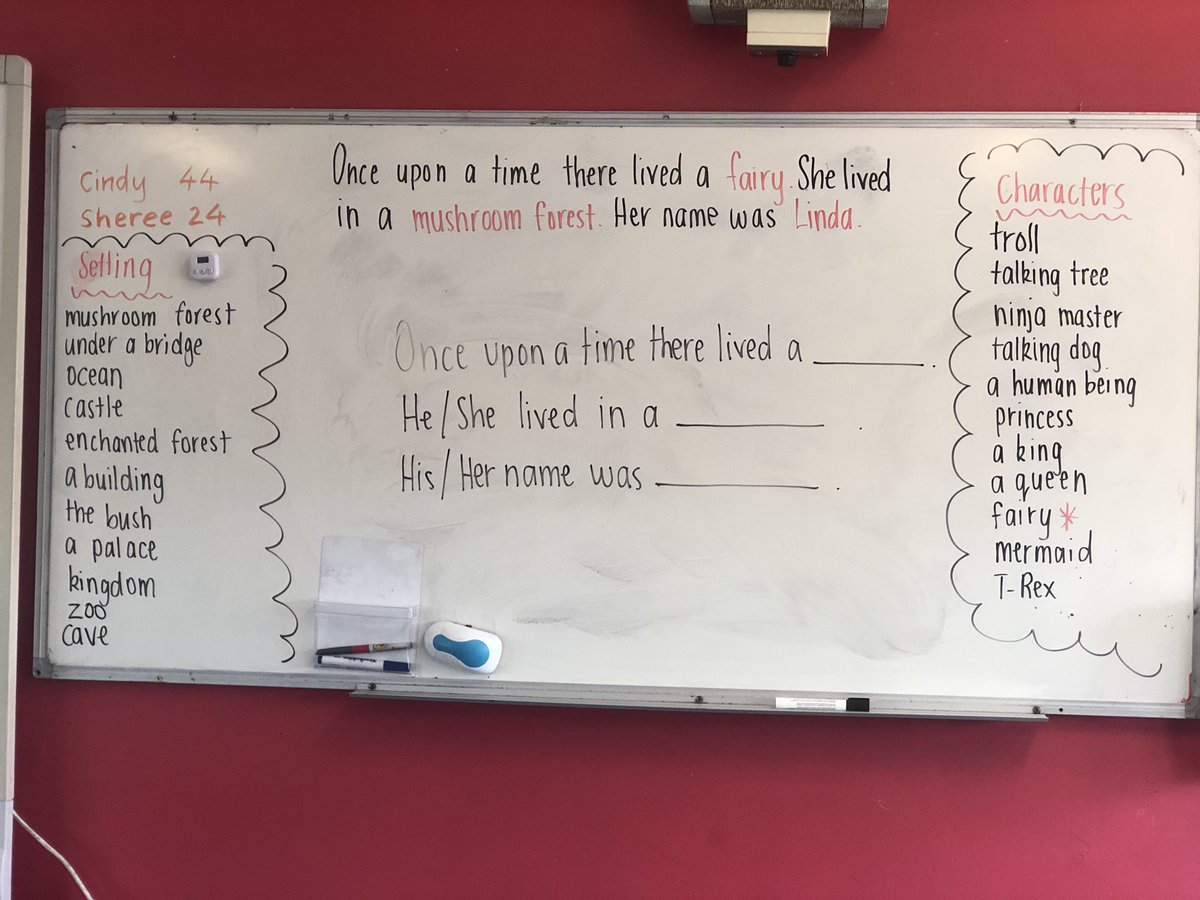 Cindy 44
Sheree 24
Setting
mushroom forest
under a bridge
ocean
castle
enchanted forest
a building
the bush
a palace
kingdom
zoo
cave
Once upon a time there lived a fairy. She lived
in a mushroom forest. Her name was Linda.
Once upon a time there lived a ________.
He/She lived in a ________.
His/Her name was ________.
Characters
troll
talking tree
ninja master
talking dog
a human being
princess
a king
a queen
fairy *
mermaid
T-Rex